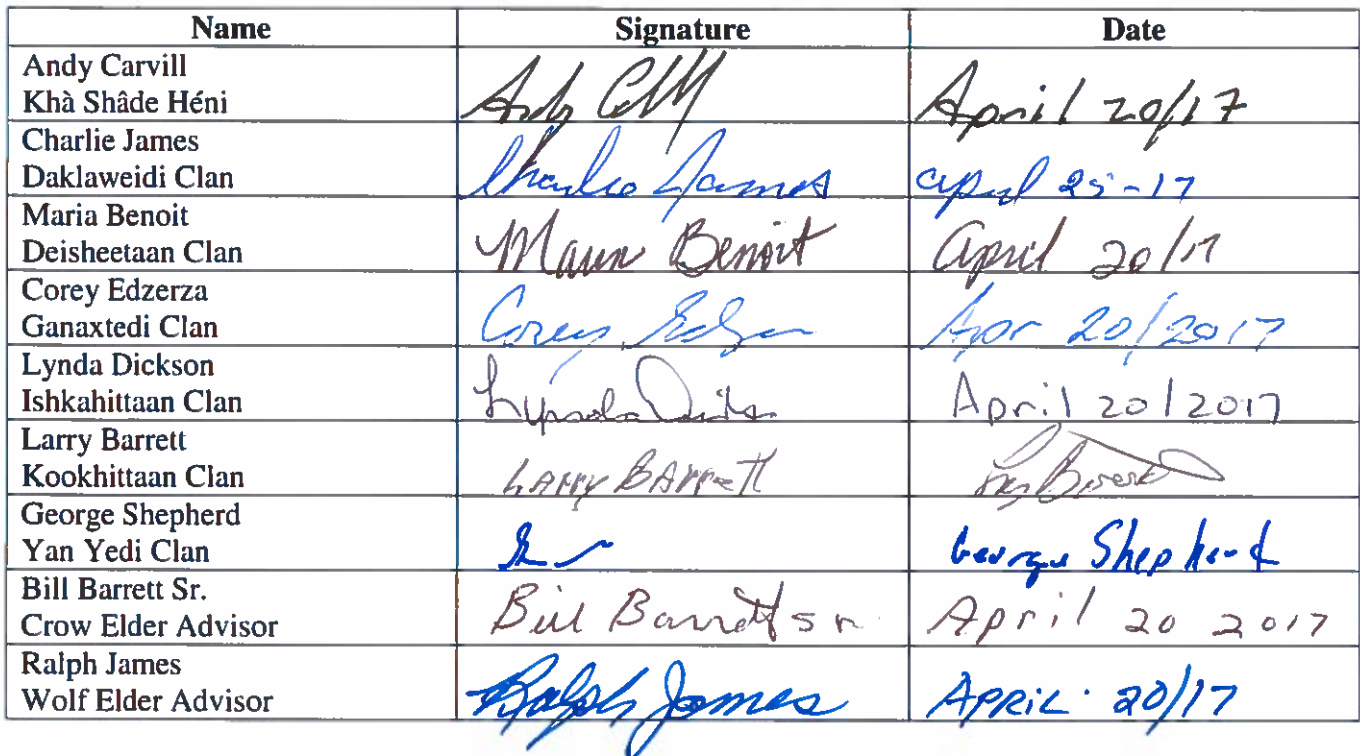 Name Signature Date
Andy Carvill
Khà Shâde Héni
Andy April 20/17
Charlie James
Daklaweidi Clan
Charlie James april 25-17
Maria Benoit
Deisheetaan Clan
Maria Benoit April 20/17
Corey Edzerza
Ganaxtedi Clan
Corey Apr 20/2017
Lynda Dickson
Ishkahittaan Clan
Lynda April 20/2017
Larry Barrett
Kookhittaan Clan
LArry BArrett
George Shepherd
Yan Yedi Clan
George Shepherd
Bill Barrett Sr.
Crow Elder Advisor
Bill Barrett sr April 20 2017
Ralph James
Wolf Elder Advisor
Ralph James APRiL 20/17